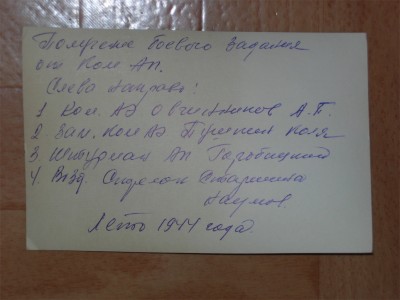 Получение боевого задания
от Ком АП.
Слева направо:
1 Ком. АЭ Овчинников А.П.
2 Зам. Ком АЭ Пушкин Коля
3 Штурман АП Горобицкий
4. Старшина
Наумов.
Лето 1944 года.